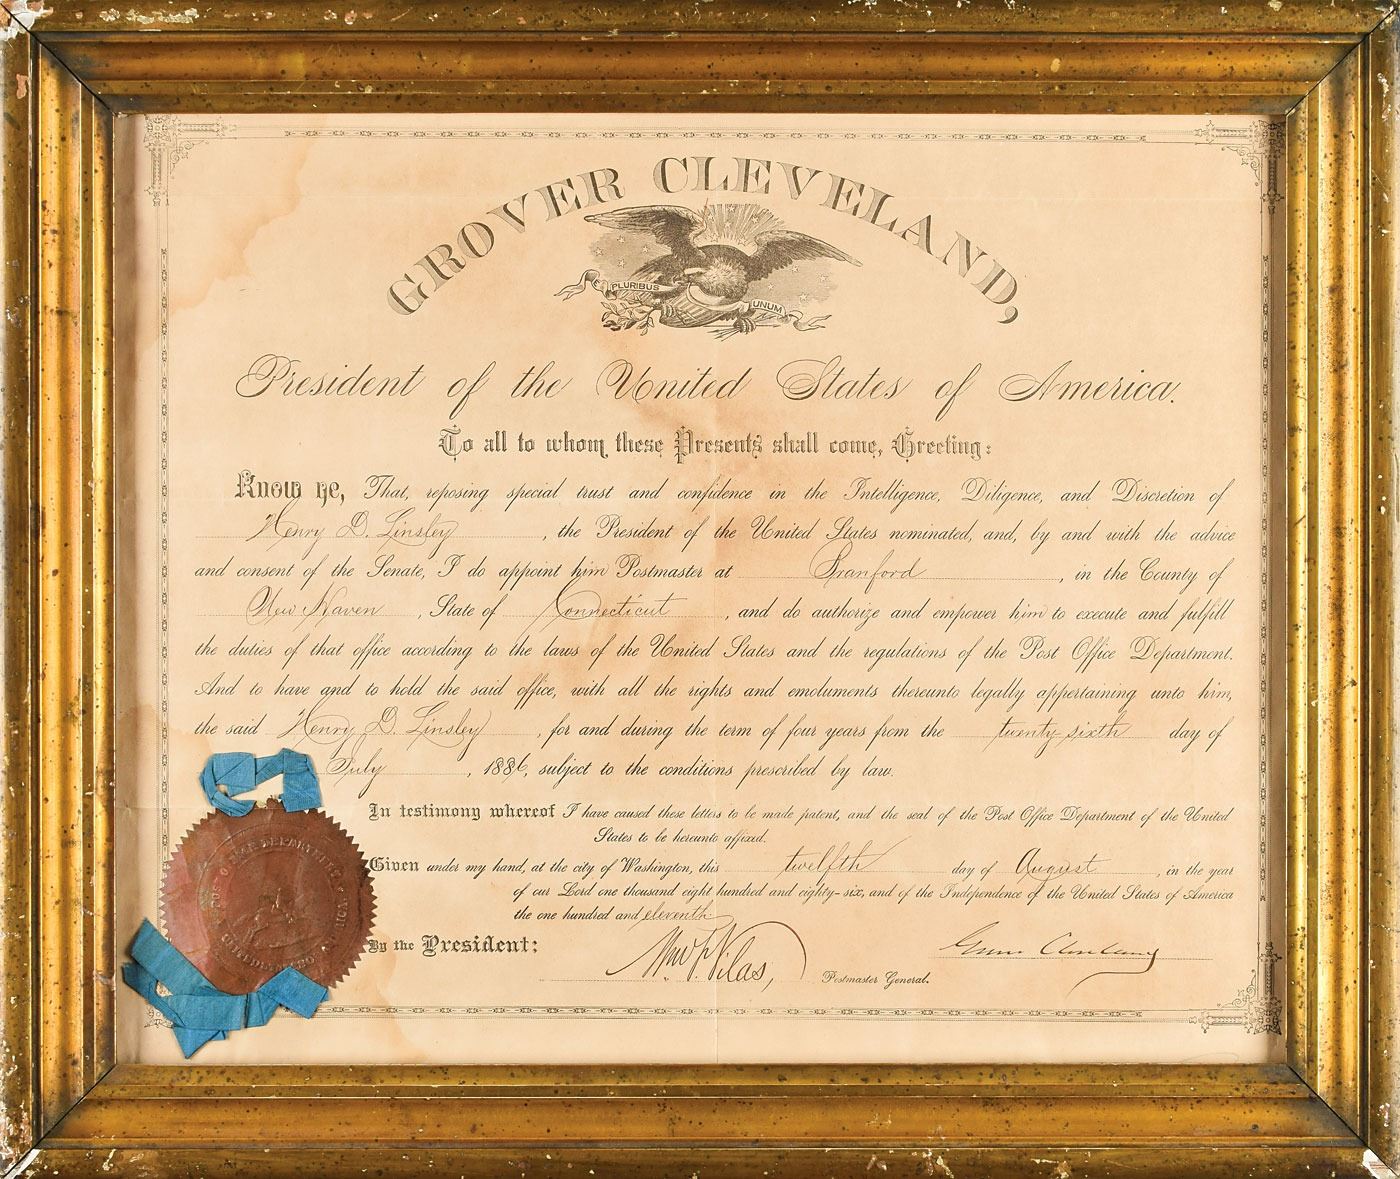 GROVER CLEVELAND,
E PLURIBUS UNUM
President of the United States of America.
To all to whom these Presents shall come, Greeting:
Know ye, That, reposing special trust and confidence in the Intelligence, Diligence, and Discretion of
Henry D. Linsley, the President of the United States nominated, and, by and with the advice
and consent of the Senate, I do appoint him Postmaster at Branford, in the County of
New Haven, State of Connecticut, and do authorize and empower him to execute and fulfill
the duties of that office according to the laws of the United States and the regulations of the Post Office Department.
And to have and to hold the said office, with all the rights and emoluments thereunto legally appertaining unto him,
the said Henry D. Linsley, for and during the term of four years from the twenty sixth day of
July, 1886, subject to the conditions prescribed by law.
In testimony whereof I have caused these letters to be made patent, and the seal of the Post Office Department of the United
States to be hereunto affixed.
Given under my hand, at the city of Washington, this twelfth day of August, in the year
of our Lord one thousand eight hundred and eighty-six, and of the Independence of the United States of America
the one hundred and eleventh.
By the President:
Grover Cleveland
Wm F Vilas, Postmaster General.